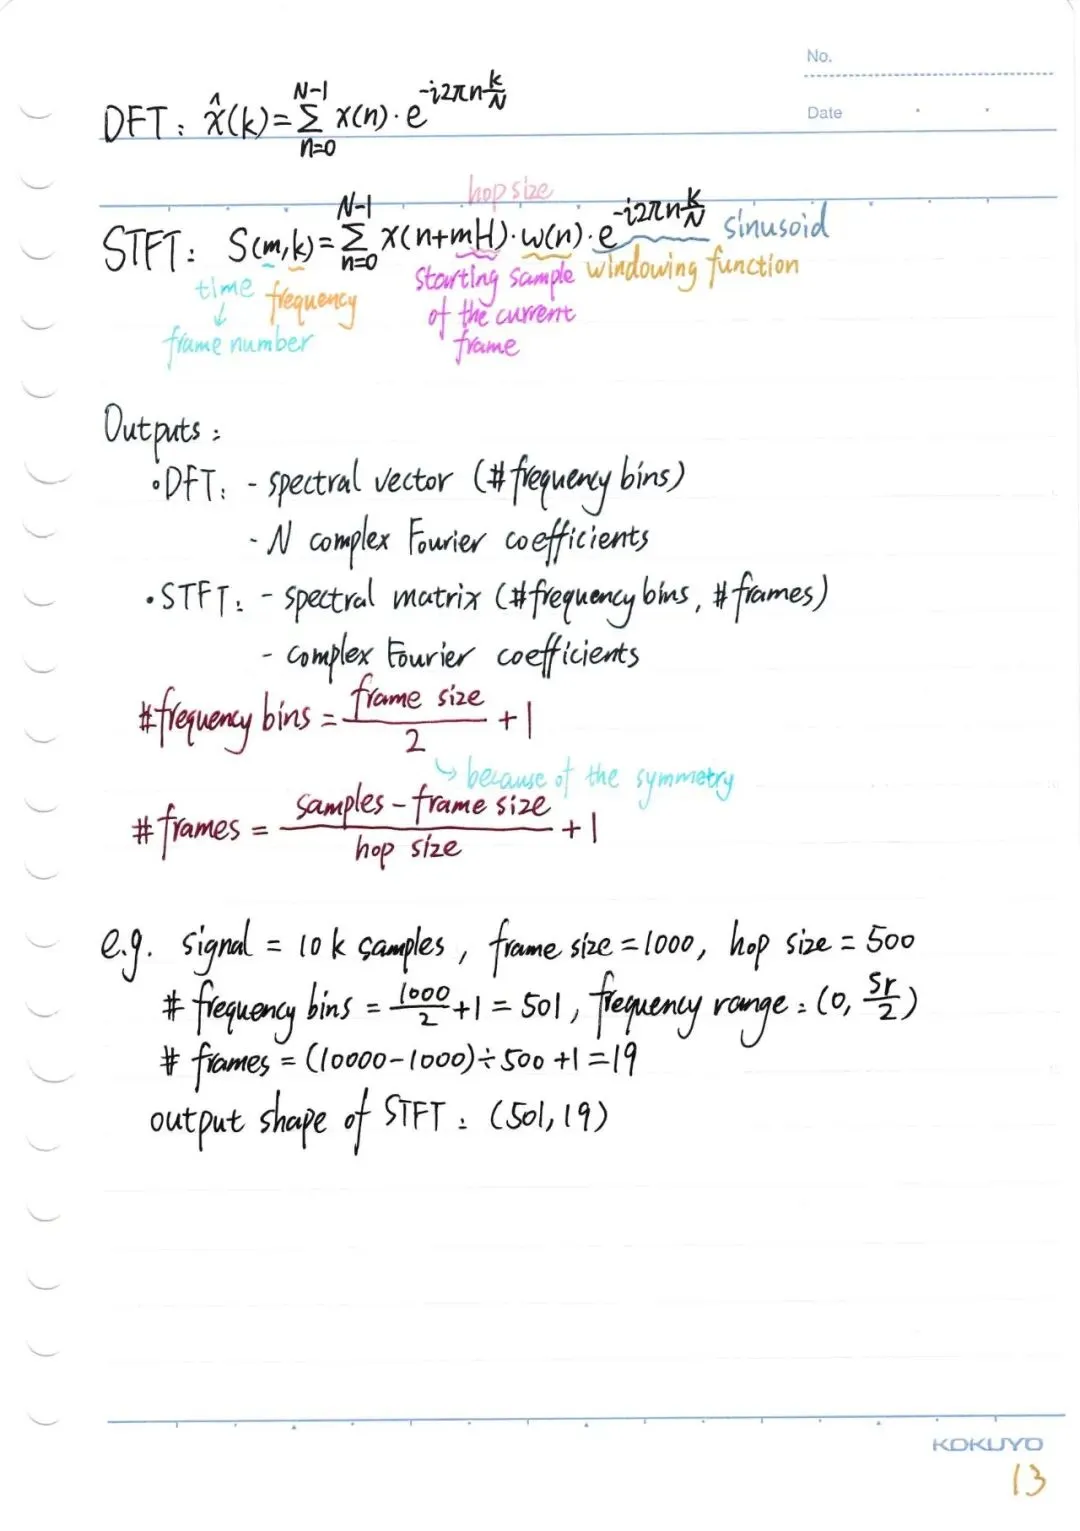 No.
Date
DFT: x̂(k) = Σ_{n=0}^{N-1} x(n)·e^{-i2πn k/N}
hop size
STFT: S(m,k) = Σ_{n=0}^{N-1} x(n+mH)·w(n)·e^{-i2πn k/N} sinusoid
time frequency starting sample windowing function
↓ of the current
frame number frame
Outputs:
•DFT: - spectral vector (#frequency bins)
- N complex Fourier coefficients
•STFT: - spectral matrix (#frequency bins, #frames)
- complex Fourier coefficients
#frequency bins = frame size / 2 + 1
↳ because of the symmetry
#frames = samples - frame size / hop size + 1
e.g. signal = 10k samples, frame size = 1000, hop size = 500
# frequency bins = 1000/2 + 1 = 501, frequency range: (0, sr/2)
# frames = (10000-1000)÷500+1=19
output shape of STFT: (501, 19)
KOKUYO
13